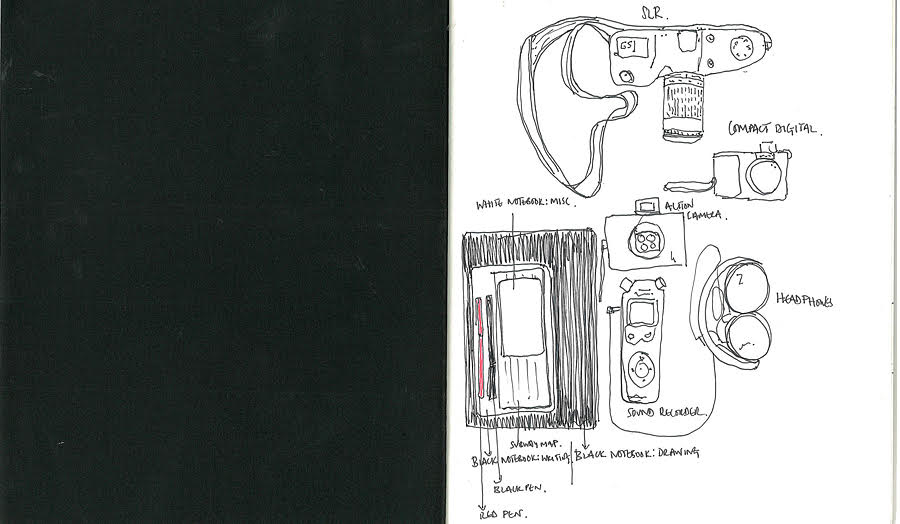 SLR.
GS1
COMPACT DIGITAL.
WHITE NOTEBOOK: MISC.
ACTION
CAMERA.
4
2
HEADPHONES
SOUND RECORDER.
SUBWAY MAP.
BLACK NOTEBOOK: WRITING.
BLACK NOTEBOOK: DRAWING
BLACK PEN.
RED PEN.